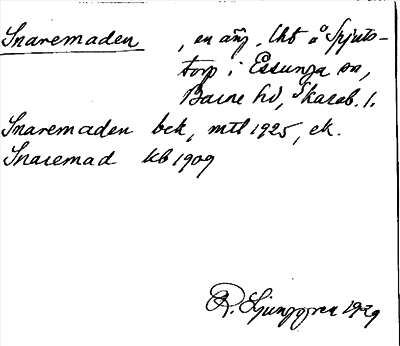 Snaremaden , en äng, lht å Spjuts-
torp i Essunga sn,
Barne hd, Skarab. l.
Snaremaden bck, mtl 1925, ek.
Snaremad kb 1909
R. Ljunggren 1929